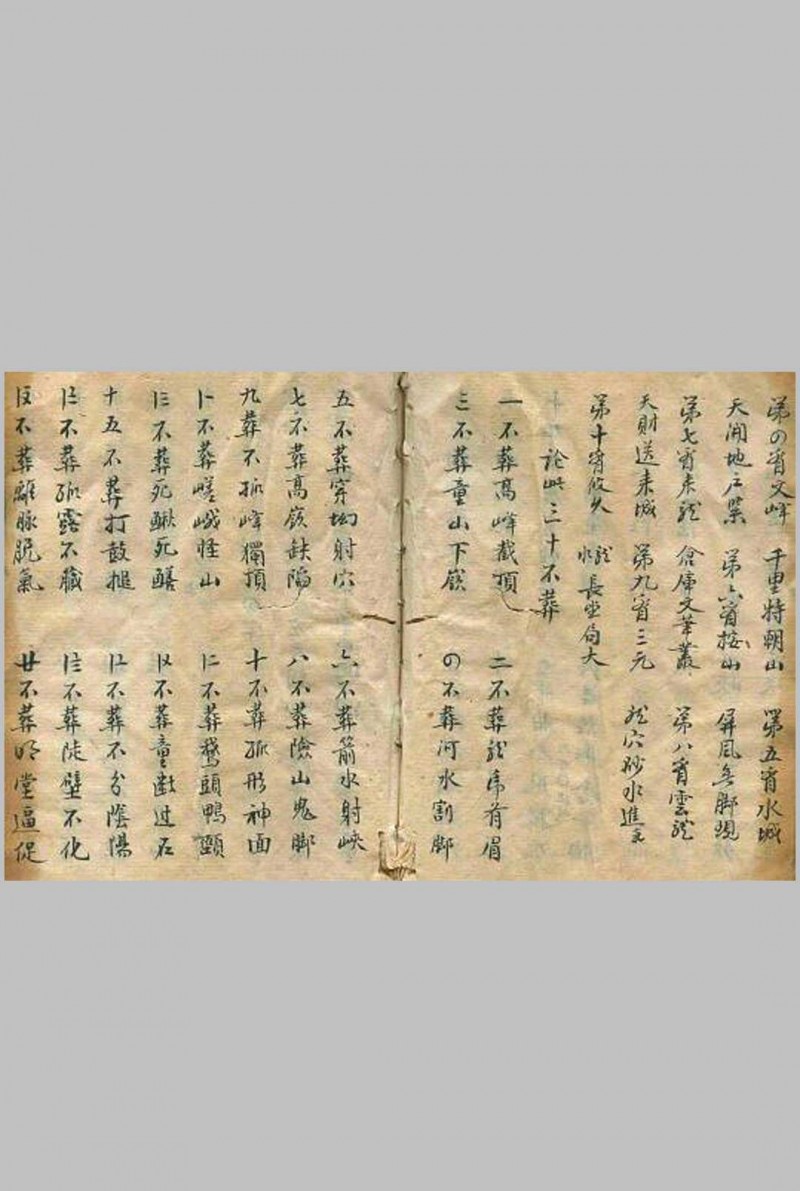 第四宵文峰 千里特朝山 第五宵水城
天開地戶 第六宵按山 屏風 脚現
第七宵来龍 倉庫文筆叢 第八宵雲龍
天財送来城 第九宵三元 龍穴砂水進
第十宵 久 水龍長 局大
論此三十不葬
一不葬高峰截頂 二不葬龍席有眉
三不葬童山下嶺 の不葬河水割脚
五不葬穿坳射穴 六不葬箭水射峽
七不葬高嶺缺陷 八不葬險山鬼脚
九葬不孤峰獨頂 十不葬孤形神面
卜不葬嵯峨怪山 仁不葬鵞頭鴨頸
不葬死鰍死鱔 不葬童斷过石
十五不葬打鼓搥 不葬不分陰陽
不葬孤露不臟 不葬陡壁不化
不葬離脉脱氣 廿不葬明堂逼促